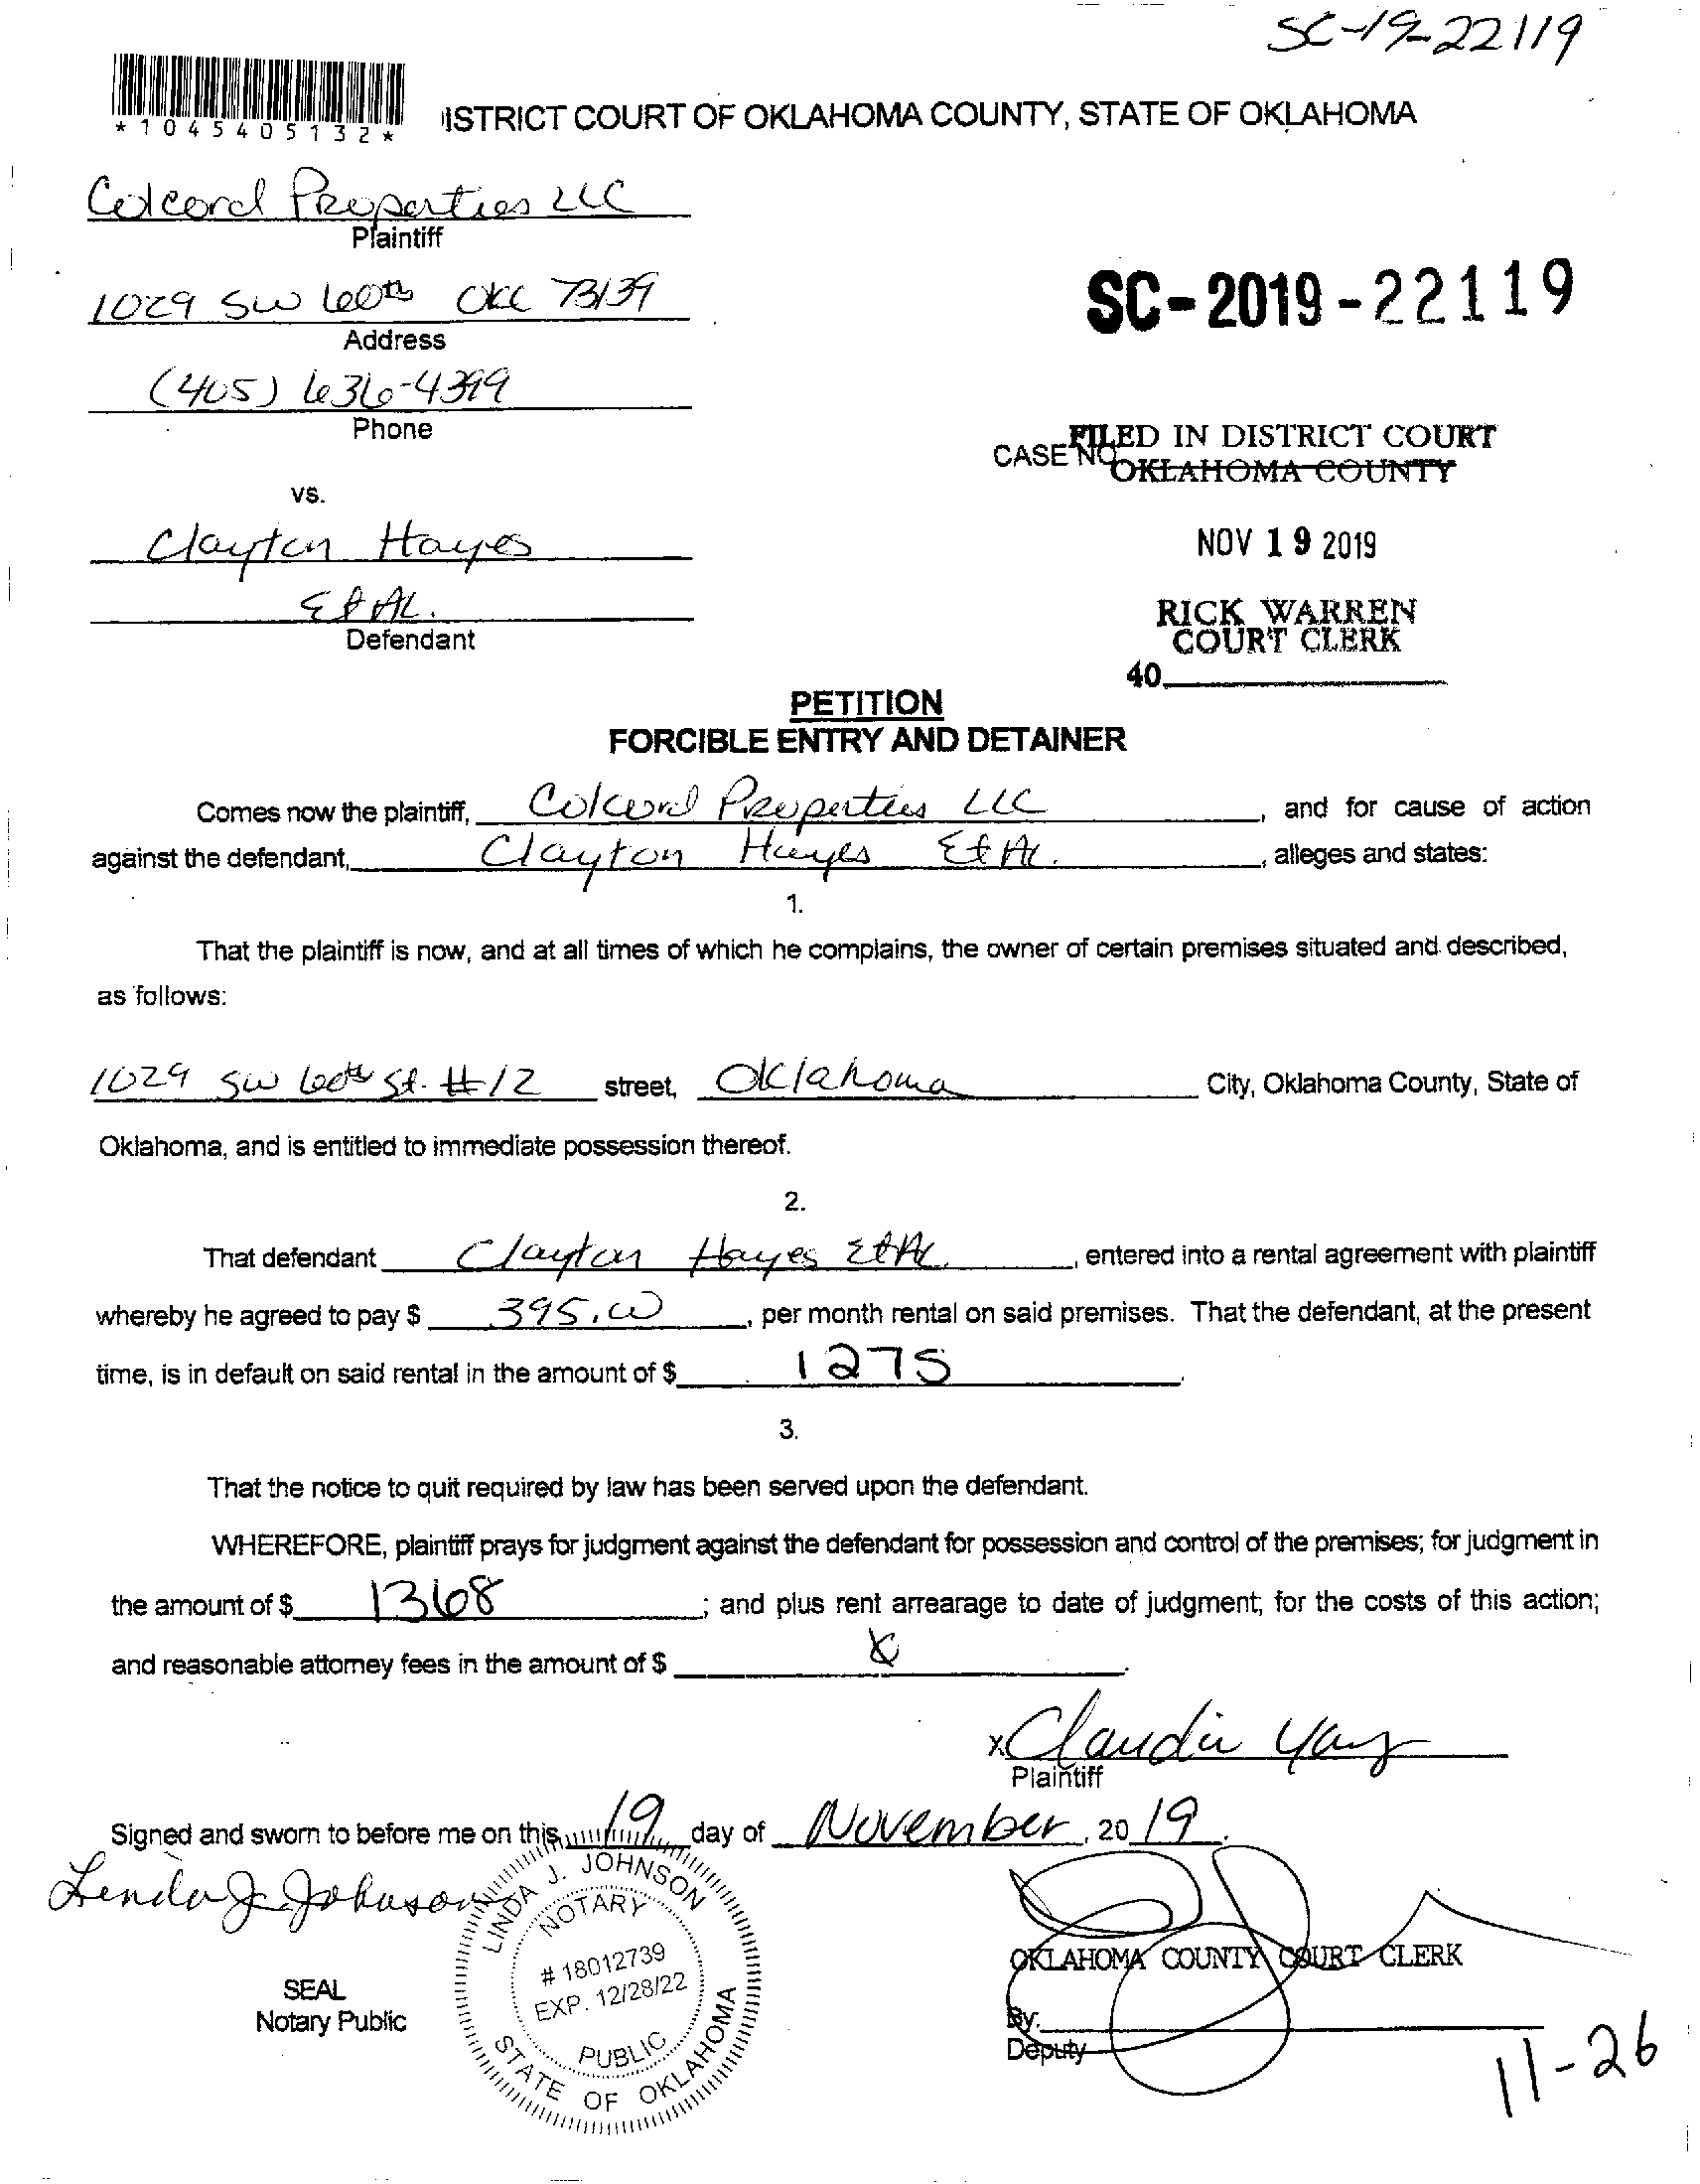 SC-19-22119
*1045405132*
ISTRICT COURT OF OKLAHOMA COUNTY, STATE OF OKLAHOMA
Colcord Properties LLC
Plaintiff
1029 SW 60th OKC 73139
Address
SC-2019-22119
(405) 636-4399
Phone
FILED IN DISTRICT COURT
CASE NO
OKLAHOMA COUNTY
vs.
Clayton Hayes
NOV 19 2019
Et AL.
Defendant
RICK WARREN
COURT CLERK
40
PETITION
FORCIBLE ENTRY AND DETAINER
Comes now the plaintiff, Colcord Properties LLC, and for cause of action
against the defendant, Clayton Hayes Et Al., alleges and states:
1.
That the plaintiff is now, and at all times of which he complains, the owner of certain premises situated and described,
as follows:
1029 SW 60th St. #12 street, Oklahoma City, Oklahoma County, State of
Oklahoma, and is entitled to immediate possession thereof.
2.
That defendant Clayton Hayes Et Al, entered into a rental agreement with plaintiff
whereby he agreed to pay $ 395.00, per month rental on said premises. That the defendant, at the present
time, is in default on said rental in the amount of $ 1275.
3.
That the notice to quit required by law has been served upon the defendant.
WHEREFORE, plaintiff prays for judgment against the defendant for possession and control of the premises; for judgment in
the amount of $ 1368; and plus rent arrearage to date of judgment; for the costs of this action;
and reasonable attorney fees in the amount of $
x Claudia
Plaintiff
Signed and sworn to before me on this 19 day of November, 2019.
Linda J Johnson
LINDA J. JOHNSON
NOTARY
# 18012739
EXP. 12/28/22
PUBLIC
STATE OF OKLAHOMA
SEAL
Notary Public
OKLAHOMA COUNTY COURT CLERK
By:
Deputy
11-26